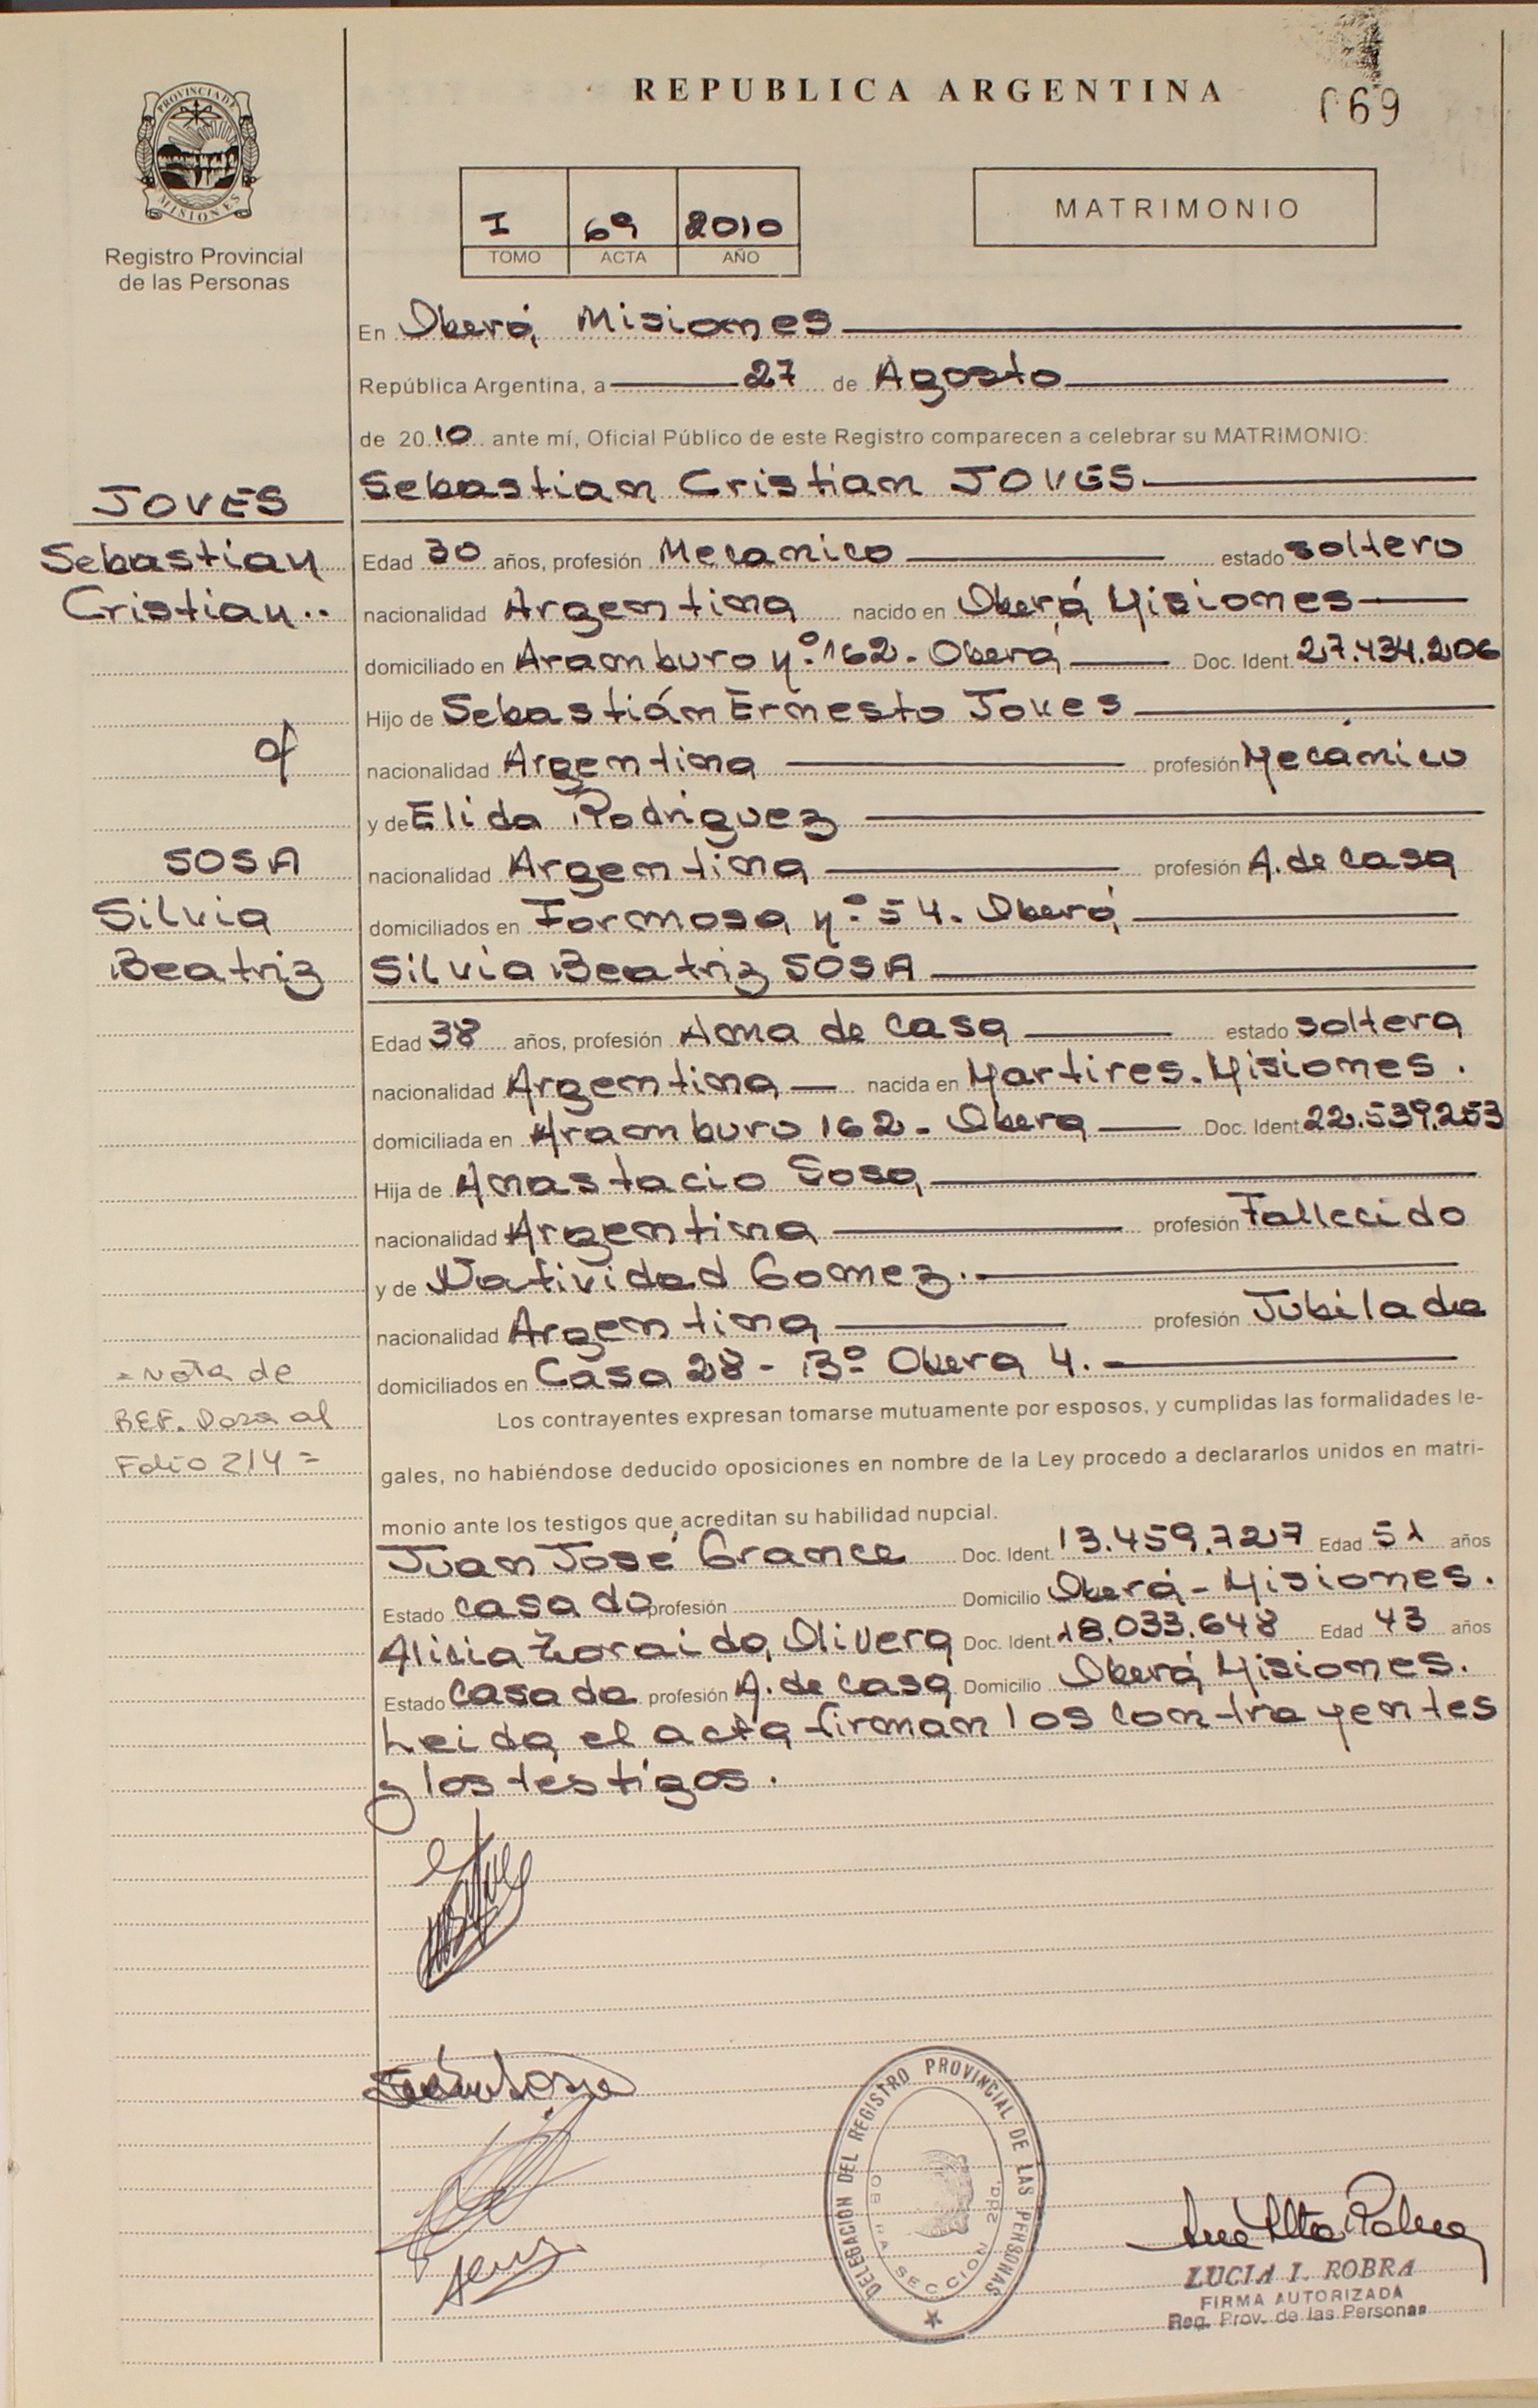 REPUBLICA ARGENTINA
069
PROVINCIA DE
MISIONES
Registro Provincial
de las Personas
I 69 2010
TOMO ACTA AÑO
MATRIMONIO
En Oberá Misiones
República Argentina, a 27 de Agosto
de 2010 ante mí, Oficial Público de este Registro comparecen a celebrar su MATRIMONIO:
JOVES
Sebastian
Cristian..
SOSA
Silvia
Beatriz
= Nota de
REF. Pasa al
Folio 214 =
Sebastian Cristian JOVES
Edad 30 años, profesión Mecanico estado soltero
nacionalidad Argentina nacido en Oberá Misiones
domiciliado en Aramburo nº 162. Oberá Doc. Ident. 27.434.206
Hijo de Sebastián Ernesto Joves
nacionalidad Argentina profesión Mecánico
y de Elida Rodriguez
nacionalidad Argentina profesión A. de casa
domiciliados en Formosa nº 54. Oberá
Silvia Beatriz SOSA
Edad 38 años, profesión Ama de casa estado soltera
nacionalidad Argentina nacida en Martires. Misiones.
domiciliada en Aramburo 162 - Obera Doc. Ident. 22.539.253
Hija de Anastacio Sosa
nacionalidad Argentina profesión Fallecido
y de Natividad Gomez.
nacionalidad Argentina profesión Jubilada
domiciliados en Casa 28 - Bº Obera 4.
Los contrayentes expresan tomarse mutuamente por esposos, y cumplidas las formalidades le-
gales, no habiéndose deducido oposiciones en nombre de la Ley procedo a declararlos unidos en matri-
monio ante los testigos que acreditan su habilidad nupcial.
Juan José Grance Doc. Ident. 13.459.727 Edad 51 años
Estado casado profesión Domicilio Oberá - Misiones.
Alicia Zoraida Olivera Doc. Ident. 18.033.648 Edad 43 años
Estado casada profesión A. de casa Domicilio Oberá Misiones.
Leida el acta firman los contrayentes
y los testigos.
DELEGACIÓN DEL REGISTRO PROVINCIAL DE LAS PERSONAS
OBERA SECCION 2da.
LUCIA I. ROBRA
FIRMA AUTORIZADA
Reg. Prov. de las Personas